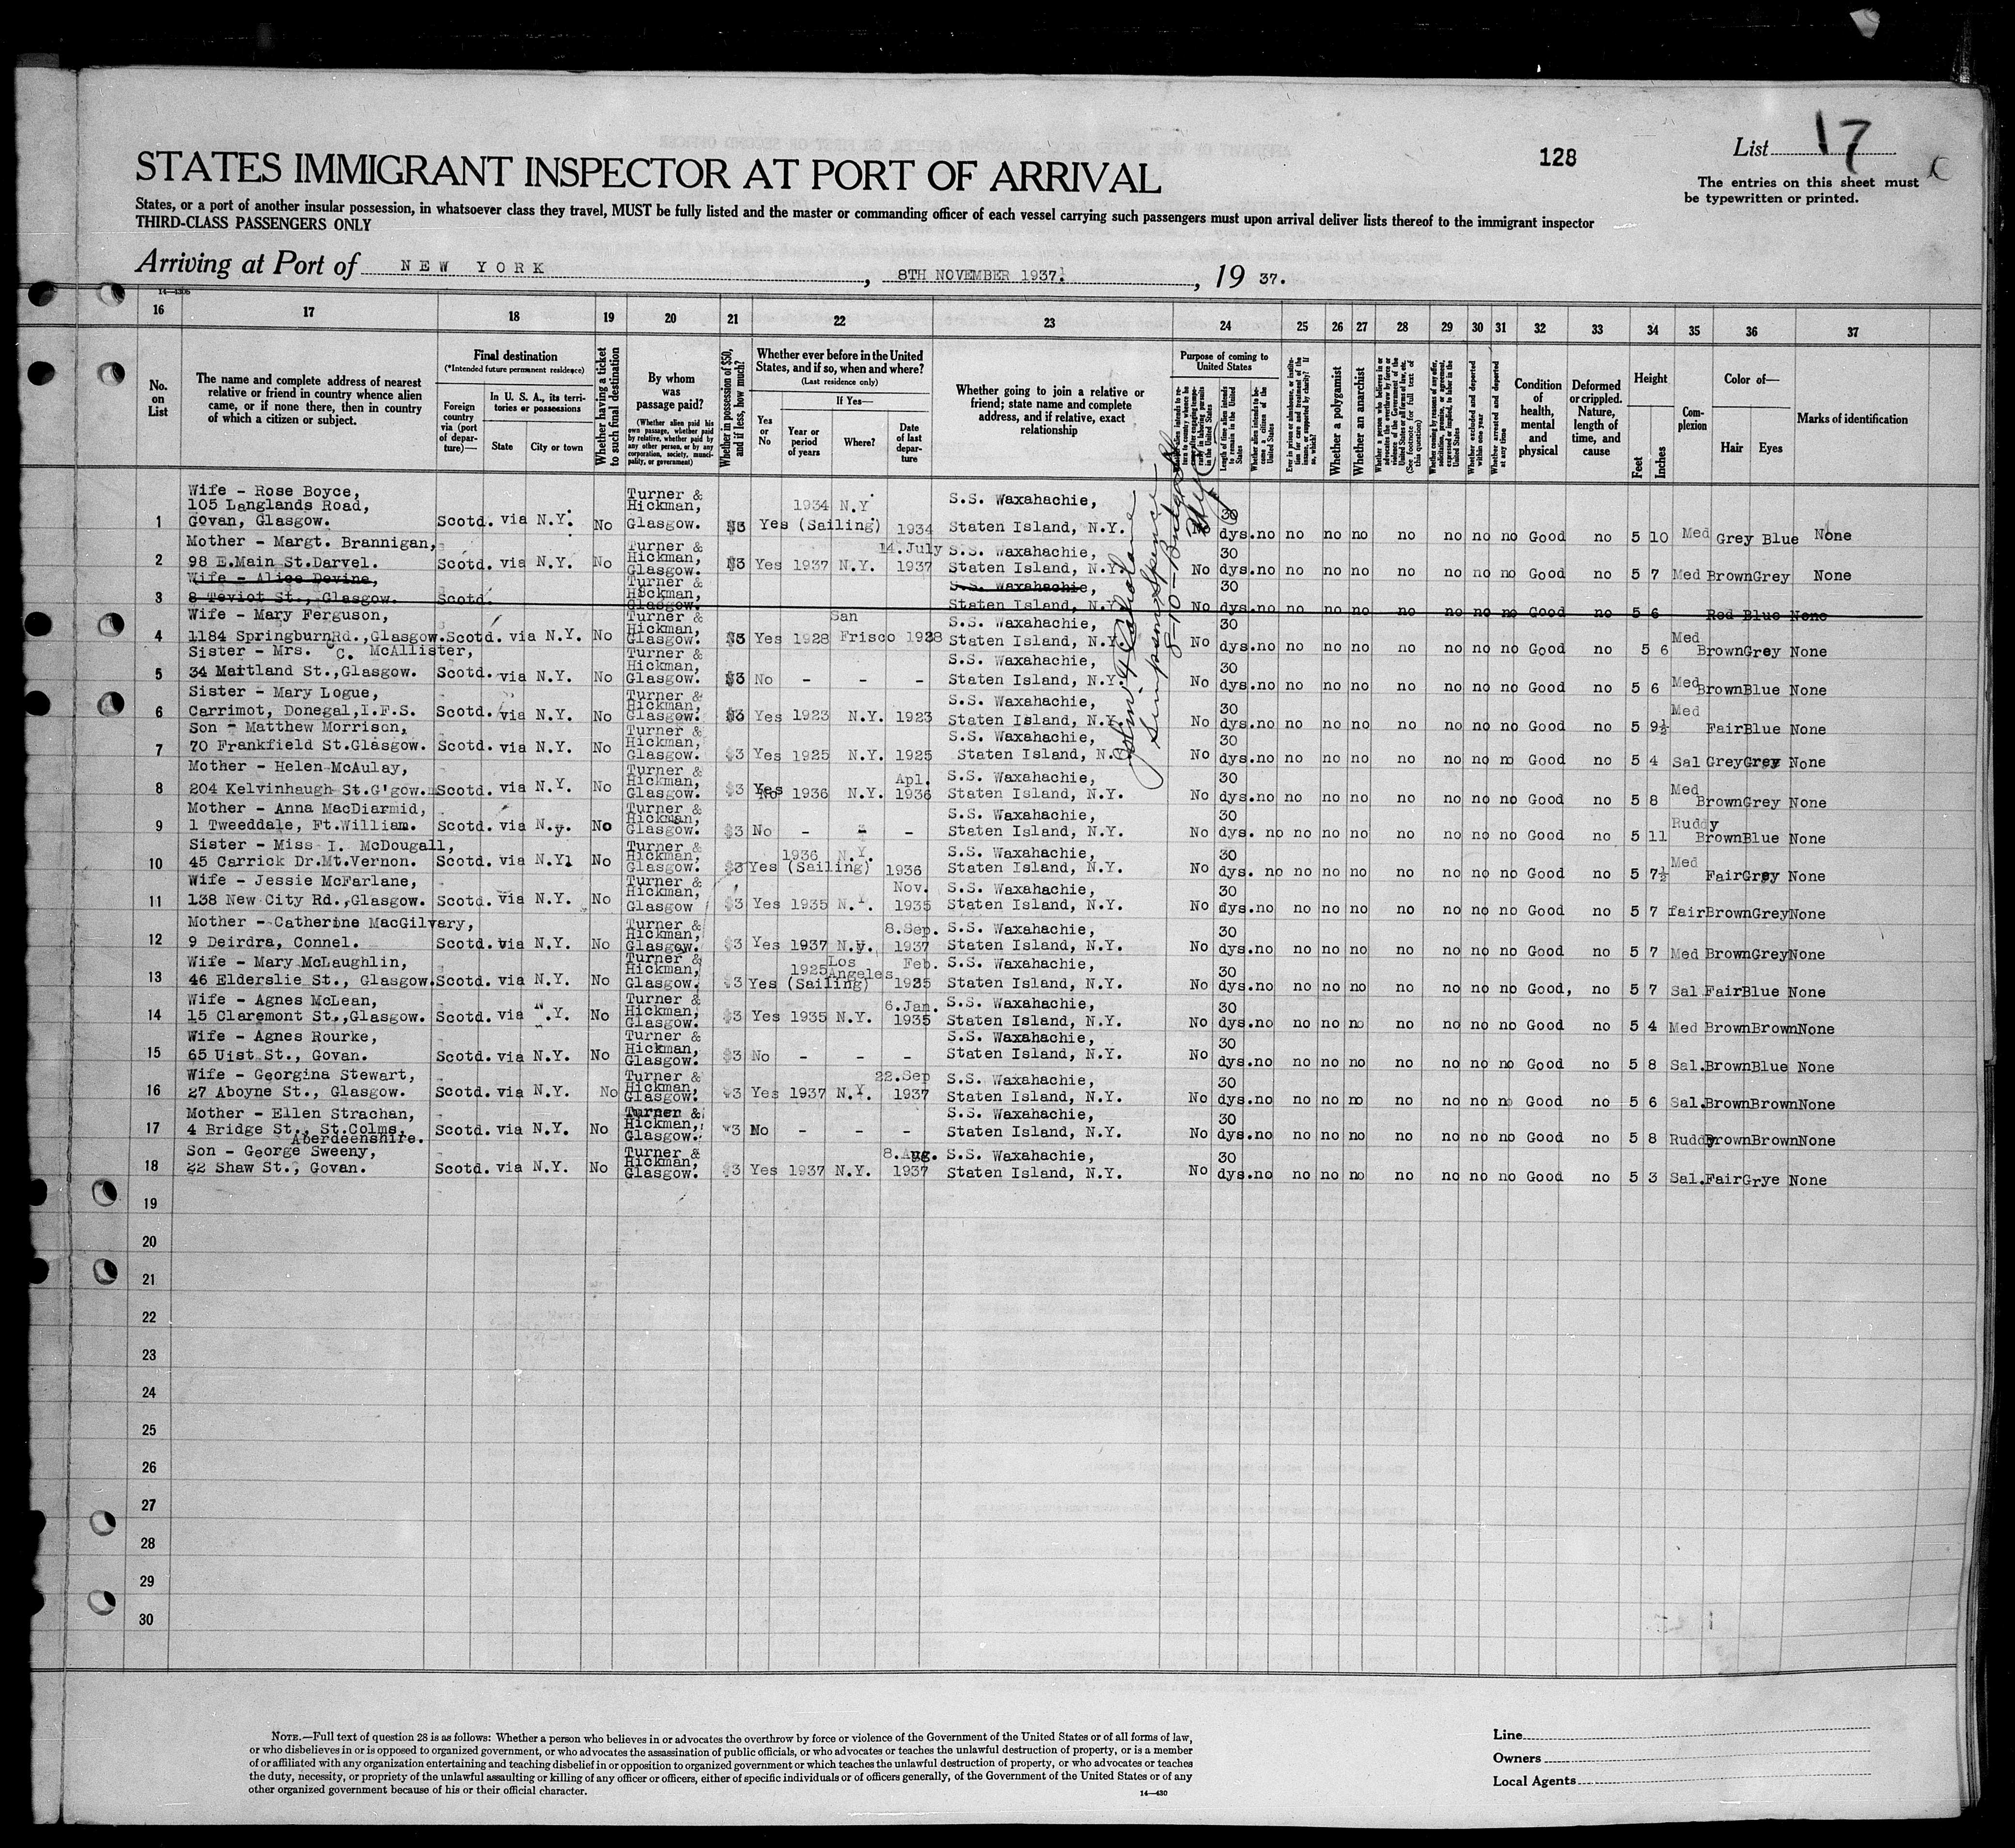 128
List 17
The entries on this sheet must
be typewritten or printed.
STATES IMMIGRANT INSPECTOR AT PORT OF ARRIVAL
States, or a port of another insular possession, in whatsoever class they travel, MUST be fully listed and the master or commanding officer of each vessel carrying such passengers must upon arrival deliver lists thereof to the immigrant inspector
THIRD-CLASS PASSENGERS ONLY
Arriving at Port of NEW YORK, 8TH NOVEMBER 1937, 19 37.
16 17 18 19 20 21 22 23 24 25 26 27 28 29 30 31 32 33 34 35 36 37
No. on List
The name and complete address of nearest relative or friend in country whence alien came, or if none there, then in country of which a citizen or subject.
Final destination
(*Intended future permanent residence)
Foreign country via (port of departure)—
In U. S. A., its territories or possessions
State
City or town
Whether having a ticket to such final destination
By whom was passage paid?
(Whether alien paid his own passage, whether paid by relative, whether paid by any other person, or by any corporation, society, municipality, or government)
Whether in possession of $50, and if less, how much?
Whether ever before in the United States, and if so, when and where?
(Last residence only)
Yes or No
If Yes—
Year or period of years
Where?
Date of last departure
Whether going to join a relative or friend; state name and complete address, and if relative, exact relationship
Purpose of coming to United States
Length of time alien intends to remain in the United States
Whether alien intends to become a citizen of the United States
Whether a polygamist
Whether an anarchist
Whether excluded and deported within one year
Whether arrested and deported at any time
Condition of health, mental and physical
Deformed or crippled. Nature, length of time, and cause
Height
Feet
Inches
Complexion
Color of—
Hair
Eyes
Marks of identification
1 Wife - Rose Boyce, 105 Langlands Road, Govan, Glasgow. Scotd. via N.Y. No Turner & Hickman, Glasgow. $3 Yes 1934 N.Y. (Sailing) 1934 S.S. Waxahachie, Staten Island, N.Y. No 30 dys. no no no no no no no no Good no 5 10 Med Grey Blue None
2 Mother - Margt. Brannigan, 98 E.Main St.Darvel. Scotd. via N.Y. No Turner & Hickman, Glasgow. $3 Yes 1937 N.Y. 14.July 1937 S.S. Waxahachie, Staten Island, N.Y. No 30 dys. no no no no no no no no Good no 5 7 Med Brown Grey None
3 Wife - Alice Devine, 8 Teviot St., Glasgow. Scotd. Turner & Hickman, Glasgow. S.S. Waxahachie, Staten Island, N.Y. No 30 dys. no no no no no no no no Good no 5 6 Red Blue None
4 Wife - Mary Ferguson, 1184 Springburn Rd., Glasgow. Scotd. via N.Y. No Turner & Hickman, Glasgow. $3 Yes 1928 San Frisco 1928 S.S. Waxahachie, Staten Island, N.Y. No 30 dys. no no no no no no no no Good no 5 6 Med Brown Grey None
5 Sister - Mrs. C. McAllister, 34 Maitland St., Glasgow. Scotd. via N.Y. No Turner & Hickman, Glasgow. $3 No - - - S.S. Waxahachie, Staten Island, N.Y. No 30 dys. no no no no no no no no Good no 5 6 Med Brown Blue None
6 Sister - Mary Logue, Carrimot, Donegal, I.F.S. Scotd. via N.Y. No Turner & Hickman, Glasgow. $3 Yes 1923 N.Y. 1923 S.S. Waxahachie, Staten Island, N.Y. No 30 dys. no no no no no no no no Good no 5 9½ Med Fair Blue None
7 Son - Matthew Morrison, 70 Frankfield St.Glasgow. Scotd. via N.Y. No Turner & Hickman, Glasgow. $3 Yes 1925 N.Y. 1925 S.S. Waxahachie, Staten Island, N.Y. No 30 dys. no no no no no no no no Good no 5 4 Sal Grey Grey None
8 Mother - Helen McAulay, 204 Kelvinhaugh St.G'gow. Scotd. via N.Y. No Turner & Hickman, Glasgow. $3 Yes 1936 N.Y. Apl. 1936 S.S. Waxahachie, Staten Island, N.Y. No 30 dys. no no no no no no no no Good no 5 8 Med Brown Grey None
9 Mother - Anna MacDiarmid, 1 Tweeddale, Ft.William. Scotd. via N.y. No Turner & Hickman, Glasgow. $3 No - - - S.S. Waxahachie, Staten Island, N.Y. No 30 dys. no no no no no no no no Good no 5 11 Ruddy Brown Blue None
10 Sister - Miss I. McDougall, 45 Carrick Dr.Mt.Vernon. Scotd. via N.Y. No Turner & Hickman, Glasgow. $3 Yes 1936 N.Y. (Sailing) 1936 S.S. Waxahachie, Staten Island, N.Y. No 30 dys. no no no no no no no no Good no 5 7½ Med Fair Grey None
11 Wife - Jessie McFarlane, 138 New City Rd., Glasgow. Scotd. via N.Y. No Turner & Hickman, Glasgow $3 Yes 1935 N.Y. Nov. 1935 S.S. Waxahachie, Staten Island, N.Y. No 30 dys. no no no no no no no no Good no 5 7 fair Brown Grey None
12 Mother - Catherine MacGilvary, 9 Deirdra, Connel. Scotd. via N.Y. No Turner & Hickman, Glasgow. $3 Yes 1937 N.y. 8.Sep. 1937 S.S. Waxahachie, Staten Island, N.Y. No 30 dys. no no no no no no no no Good no 5 7 Med Brown Grey None
13 Wife - Mary McLaughlin, 46 Elderslie St., Glasgow. Scotd. via N.Y. No Turner & Hickman, Glasgow. $3 Yes 1925 Los Angeles (Sailing) Feb. 1925 S.S. Waxahachie, Staten Island, N.Y. No 30 dys. no no no no no no no no Good, no 5 7 Sal Fair Blue None
14 Wife - Agnes McLean, 15 Claremont St., Glasgow. Scotd. via N.Y. No Turner & Hickman, Glasgow. $3 Yes 1935 N.Y. 6.Jan. 1935 S.S. Waxahachie, Staten Island, N.Y. No 30 dys. no no no no no no no no Good no 5 4 Med Brown Brown None
15 Wife - Agnes Rourke, 65 Uist St., Govan. Scotd. via N.Y. No Turner & Hickman, Glasgow. $3 No - - - S.S. Waxahachie, Staten Island, N.Y. No 30 dys. no no no no no no no no Good no 5 8 Sal. Brown Blue None
16 Wife - Georgina Stewart, 27 Aboyne St., Glasgow. Scotd. via N.Y. No Turner & Hickman, Glasgow. $3 Yes 1937 N.Y. 22.Sep 1937 S.S. Waxahachie, Staten Island, N.Y. No 30 dys. no no no no no no no no Good no 5 6 Sal. Brown Brown None
17 Mother - Ellen Strachan, 4 Bridge St., St.Colms, Aberdeenshire. Scotd. via N.Y. No Turner & Hickman, Glasgow. $3 No - - - S.S. Waxahachie, Staten Island, N.Y. No 30 dys. no no no no no no no no Good no 5 8 Ruddy Brown Brown None
18 Son - George Sweeny, 22 Shaw St., Govan. Scotd. via N.Y. No Turner & Hickman, Glasgow. $3 Yes 1937 N.Y. 8.Aug. 1937 S.S. Waxahachie, Staten Island, N.Y. No 30 dys. no no no no no no no no Good no 5 3 Sal. Fair Grye None
19
20
21
22
23
24
25
26
27
28
29
30
NOTE.—Full text of question 28 is as follows: Whether a person who believes in or advocates the overthrow by force or violence of the Government of the United States or of all forms of law,
or who disbelieves in or is opposed to organized government, or who advocates the assassination of public officials, or who advocates or teaches the unlawful destruction of property, or is a member
of or affiliated with any organization entertaining and teaching disbelief in or opposition to organized government or which teaches the unlawful destruction of property, or who advocates or teaches
the duty, necessity, or propriety of the unlawful assaulting or killing of any officer or officers, either of specific individuals or of officers generally, of the Government of the United States or of any
other organized government because of his or their official character.
14—430
Line
Owners
Local Agents